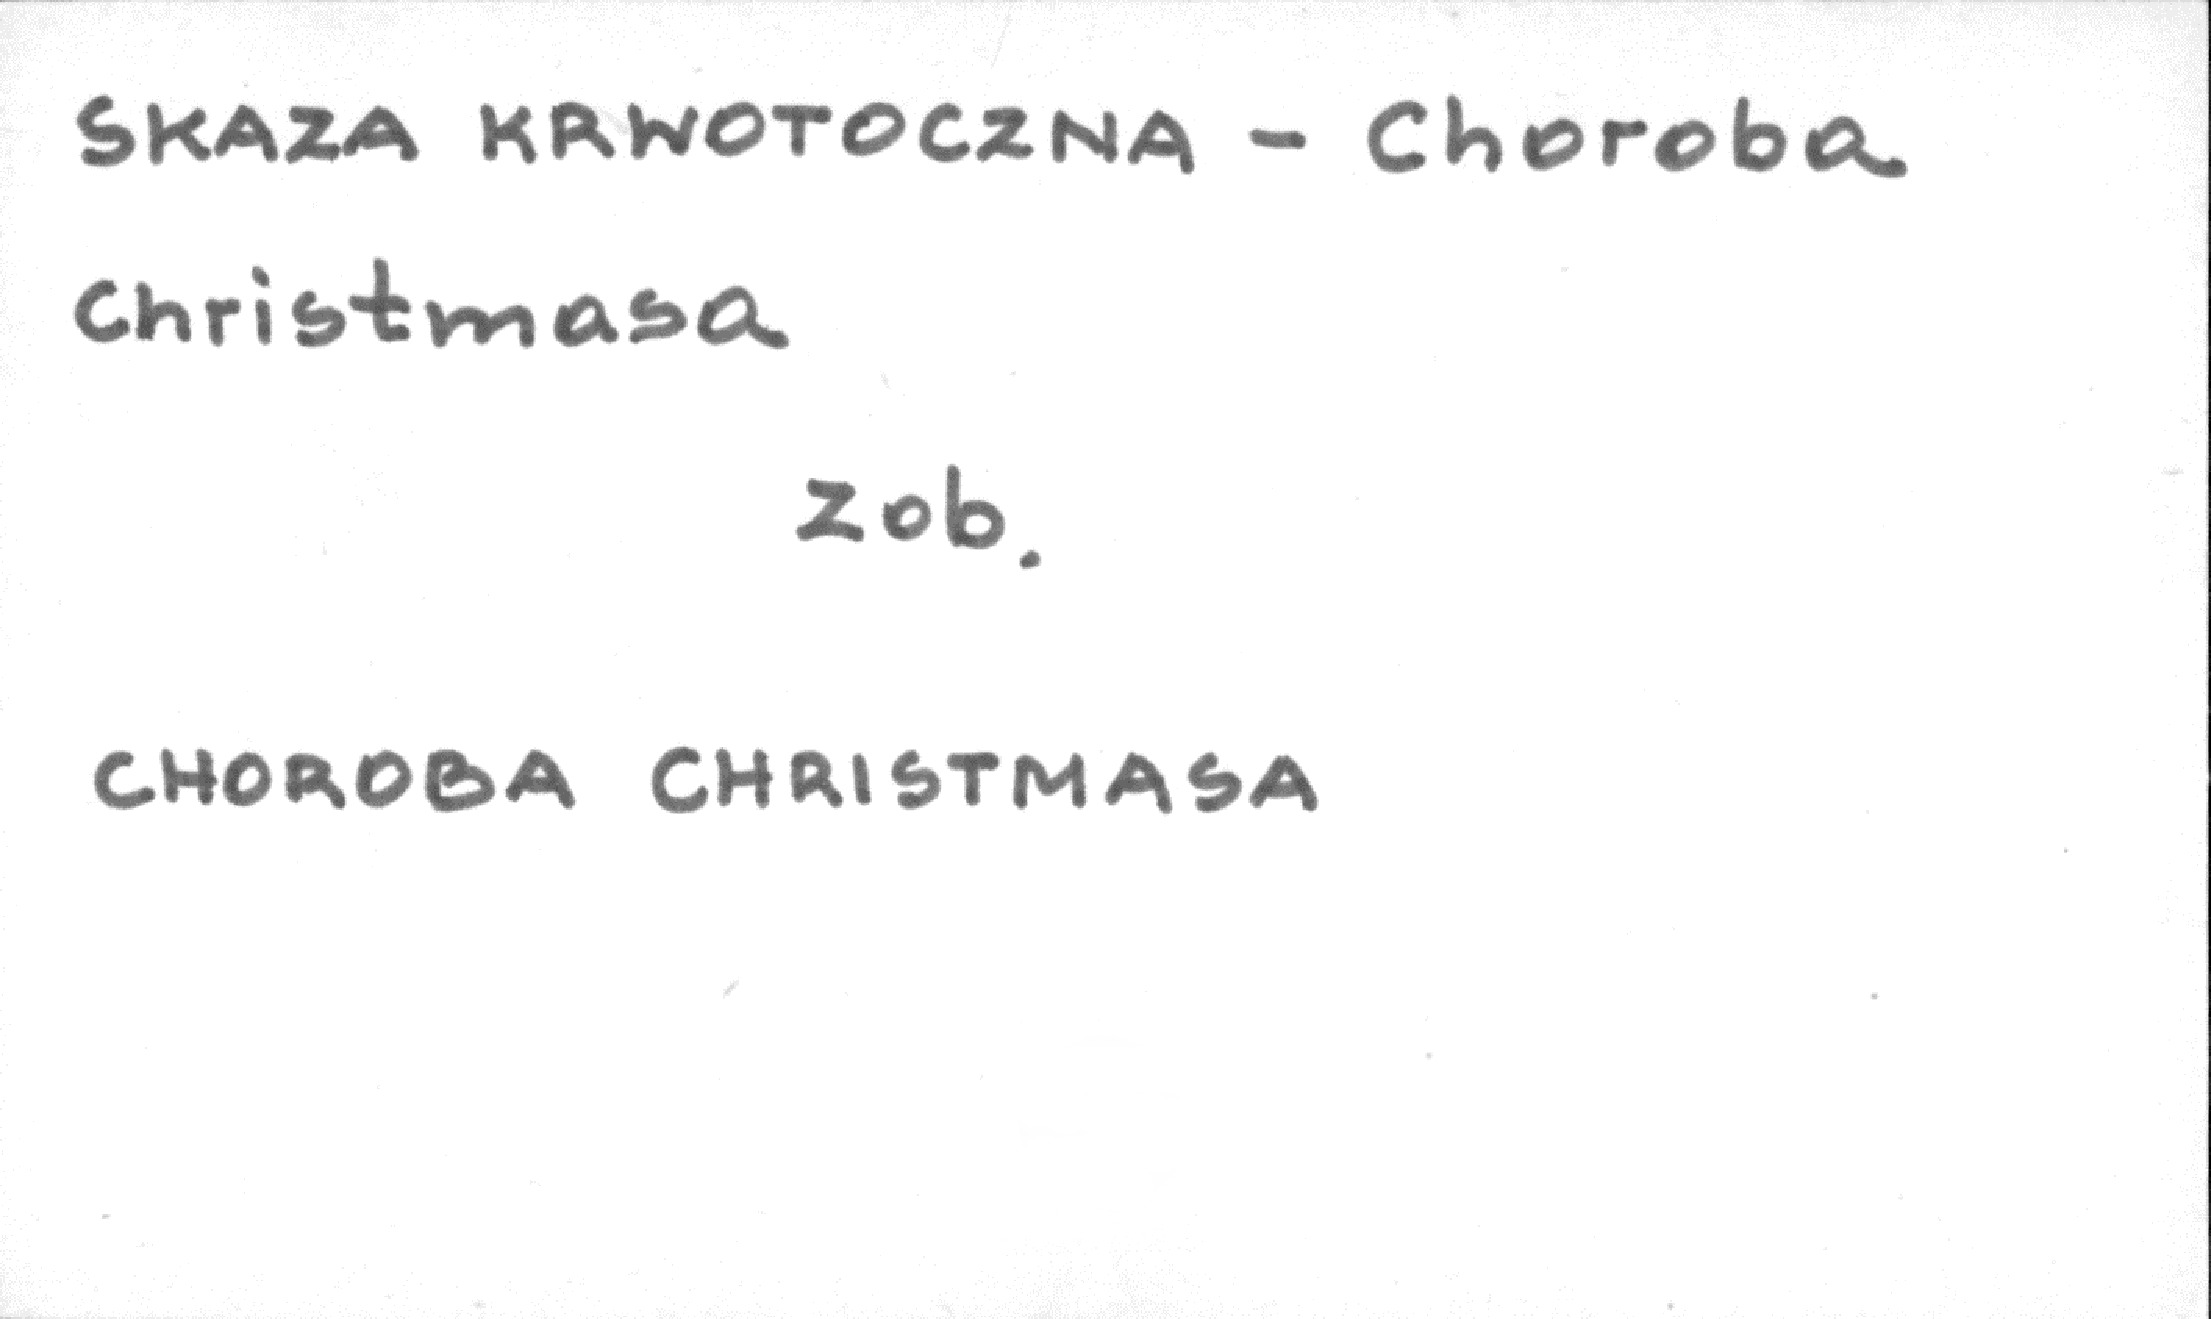 SKAZA KRWOTOCZNA - Choroba
Christmasa
zob.
CHOROBA CHRISTMASA